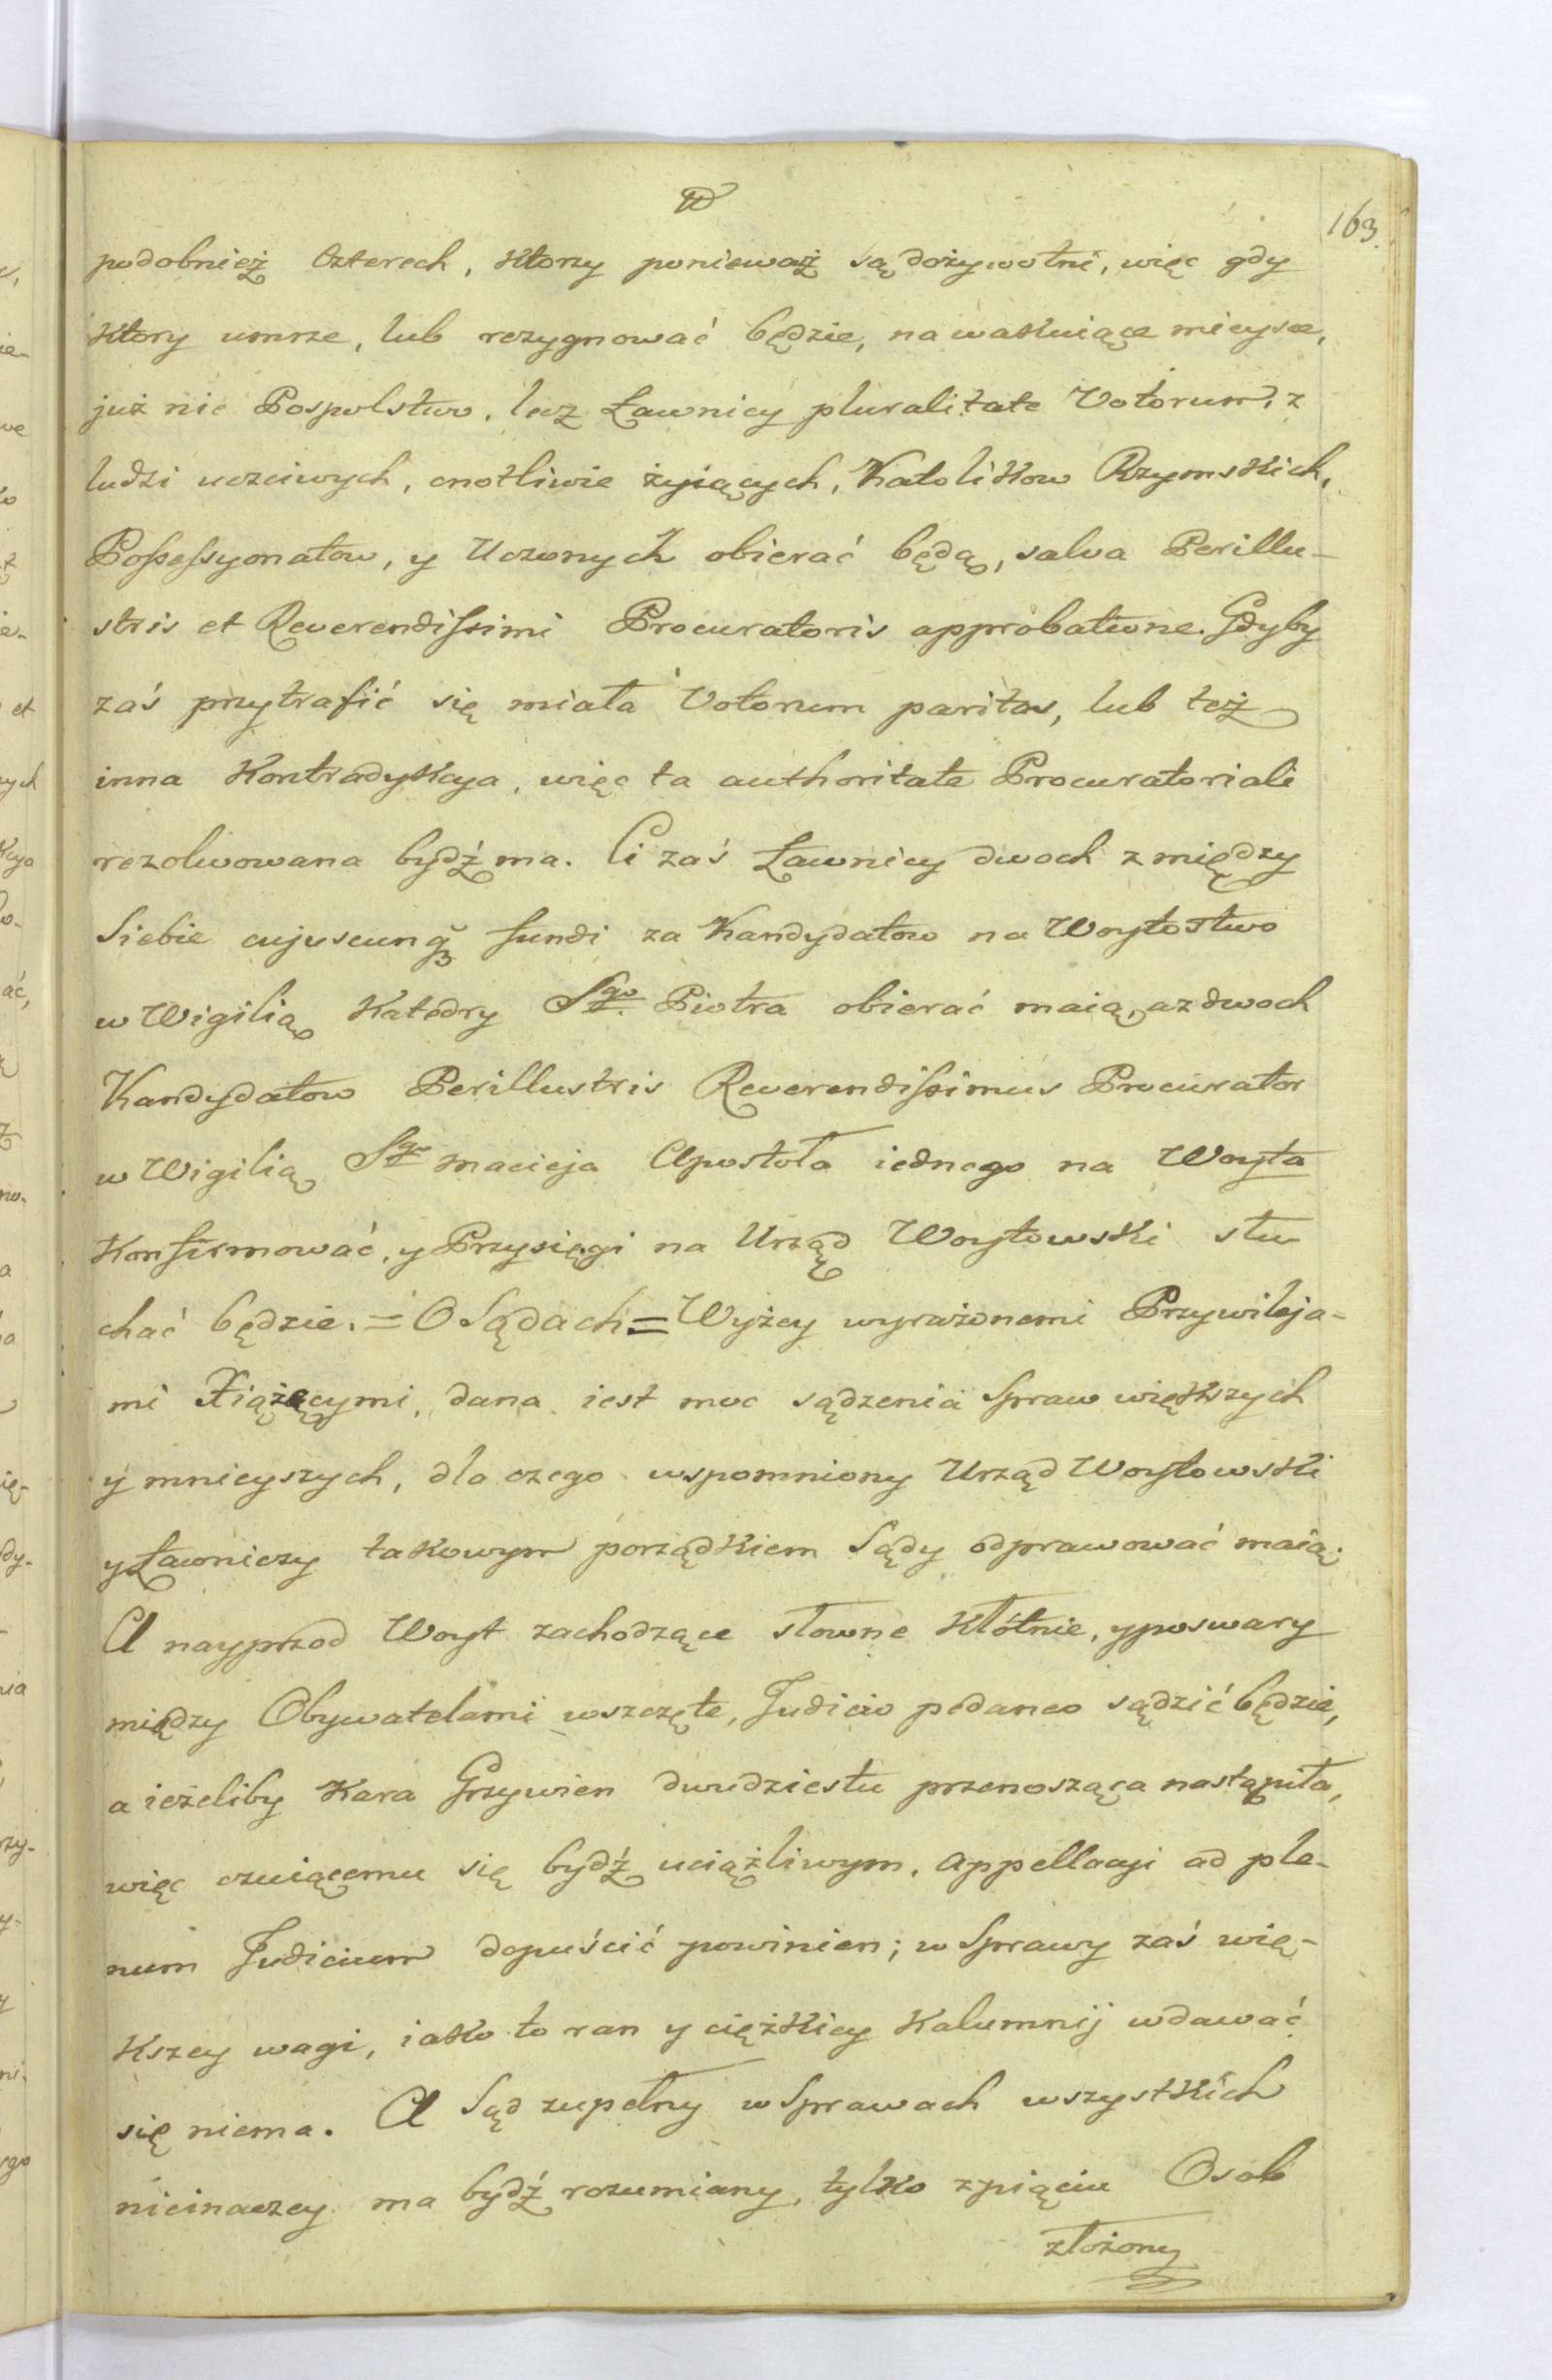 163.
podobnież Czterech, ktorzy ponieważ są dożywotni, więc gdy
ktory umrze, lub rezygnować będzie, na wakuiące mieysce,
już nie Pospolstwo, lecz Ławnicy pluralitate Votorum, z
ludzi uczciwych, cnotliwie żyiących, Katolikow Rzymskich,
Poſseſsyonatow, y Uczonych obierać będą, salva Perillu-
stris et Reverendiſsimi Procuratoris approbatione. Gdyby
zaś przytrafić się miała Votorum paritas, lub też
inna Kontradykcya, więc ta authoritate Procuratoriali
rezolwowana bydź ma. Ci zaś Ławnicy dwoch z między
Siebie cujuscunqꝫ fundi za Kandydatow na Woytostwo
w Wigilią Katedry Sgo. Piotra obierać maią, a z dwoch
Kandydatow Perillustris Reverendiſsimus Procurator
w Wigilią Sgo Macieja Apostoła iednego na Woyta
Konfirmować, y Przysięgi na Urząd Woytowski słu
chać będzie. = O Sądach = Wyżey wyrażonemi Przywileja-
mi Xiążęcymi, dana iest moc sądzenia Spraw większych
y mnieyszych, dla czego wspomniony Urząd Woytowski
y Ławniczy takowym porządkiem Sądy odprawować maią.
A nayprzod Woyt zachodzące słowne Kłótnie, y poswary
między Obywatelami wszczęte, Judicio pedaneo sądzić będzie,
a ieżeliby Kara Grzywien dwudziestu przenosząca nastąpiła,
więc czuiącemu się bydź uciążliwym, Appellacyi ad ple-
num Judicium dopuścić powinien; w Sprawy zaś wię-
kszey wagi, iako to ran y ciężkiey Kalumnij wdawać
się niema. A Sąd zupełny w Sprawach wszystkich
nieinaczey ma bydź rozumiany, tylko z piąciu Osob
złożony